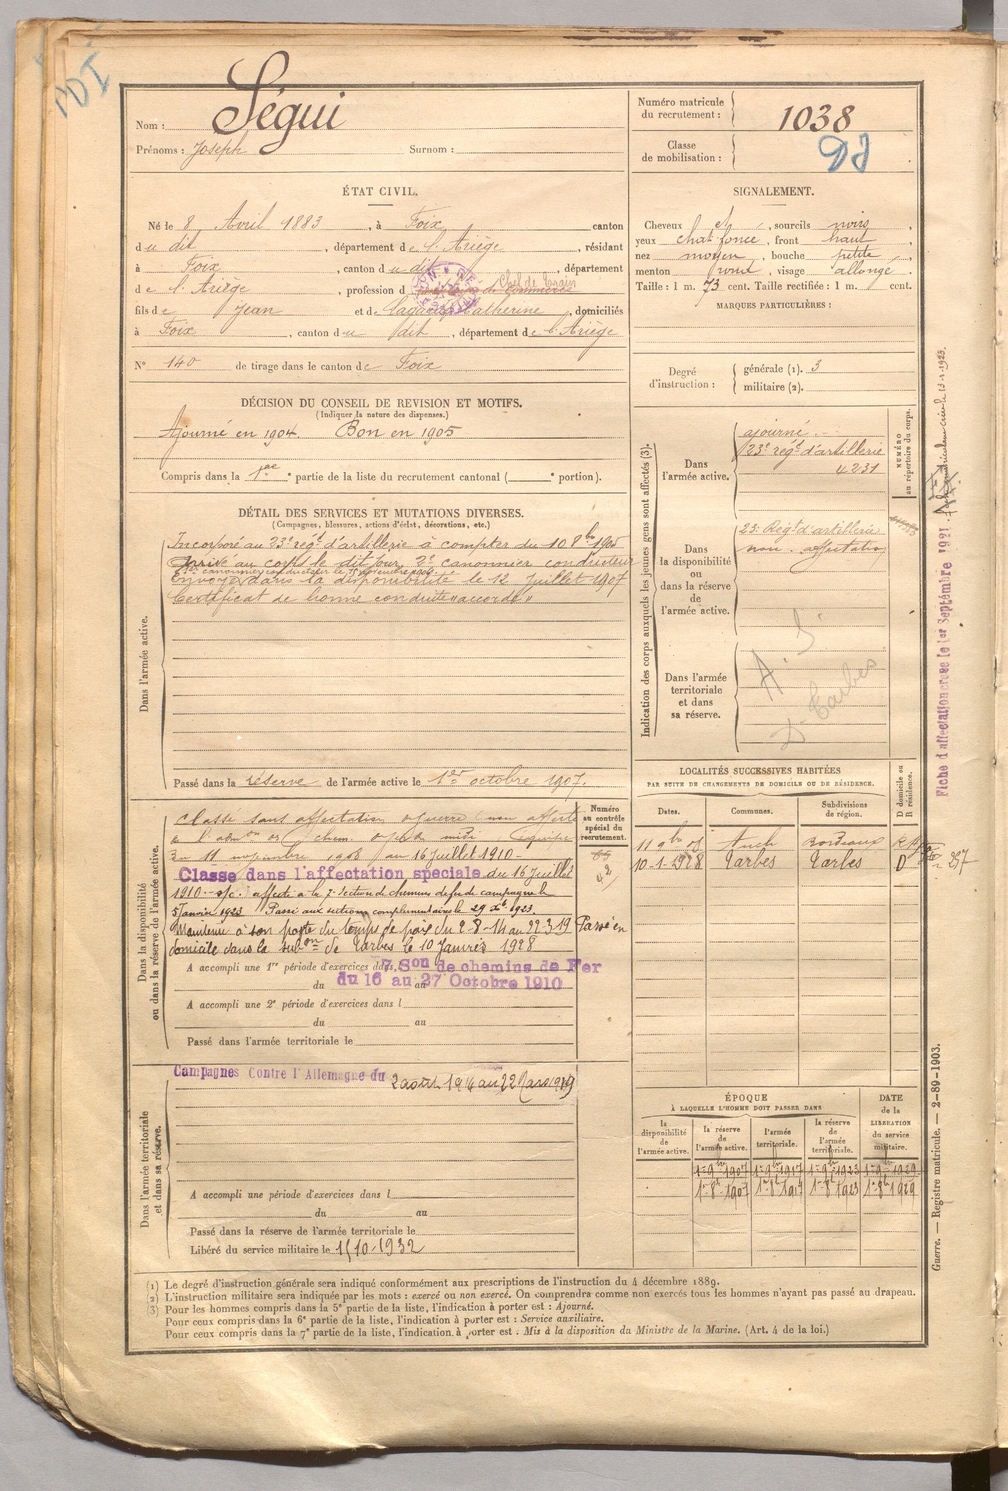 Nom : Ségui
Prénoms : Joseph Surnom :
Numéro matricule du recrutement : 1038
Classe de mobilisation :
ÉTAT CIVIL.
Né le 8 Avril 1883, à Foix canton
du dit, département de l'Ariège, résidant
à Foix, canton du dit, département
de l'Ariège, profession d Chef de train
fils de Jean et de Catherine, domiciliés
à Foix, canton du dit, département de l'Ariège
N° 140 de tirage dans le canton de Foix
SIGNALEMENT.
Cheveux et, sourcils noirs,
yeux chat. foncé, front haut,
nez moyen, bouche petite,
menton rond, visage allongé
Taille : 1 m. 73 cent. Taille rectifiée : 1 m. cent.
MARQUES PARTICULIÈRES :
Degré d'instruction :
générale (1). 3
militaire (2).
DÉCISION DU CONSEIL DE REVISION ET MOTIFS.
(Indiquer la nature des dispenses.)
Ajourné en 1904. Bon en 1905
Compris dans la 1ère partie de la liste du recrutement cantonal ( portion).
DÉTAIL DES SERVICES ET MUTATIONS DIVERSES.
(Campagnes, blessures, actions d'éclat, décorations, etc.)
Dans l'armée active.
Incorporé au 23e régt d'artillerie à compter du 10 8bre 1905
Arrivé au corps le dit jour, 2e canonnier conducteur
Envoyé dans la disponibilité le 12 Juillet 1907
Certificat de bonne conduite "accordé"
Passé dans la réserve de l'armée active le 1er octobre 1907.
Indication des corps auxquels les jeunes gens sont affectés (3).
Dans l'armée active.
ajourné.
23e régt d'artillerie
4231
NUMÉRO au répertoire du corps.
Dans la disponibilité ou dans la réserve de l'armée active.
23e Regt d'artillerie
non affectation
Dans l'armée territoriale et dans sa réserve.
A. S.
D. Tarbes
Fiche d'affectation créée le 1er Septembre 1921.
Dans la disponibilité ou dans la réserve de l'armée active.
Numéro au contrôle spécial du recrutement.
Classé sans affectation
du 11 novembre 1908 au 16 Juillet 1910 -
Classé dans l'affectation spéciale du 16 Juillet
1910 - s/c. affecté à la 7e section de chemins de fer de campagne le
5 Janvier 1923 Passé aux sections complémentaires le 29 Xbre 1923.
Maintenu à son poste du temps de paix du 2-8-14 au 22-3-19 Passé en
domicile dans la subon de Tarbes le 10 Janvier 1928
A accompli une 1re période d'exercices dans 7e Son de chemins de Fer
du 16 au 27 Octobre 1910
A accompli une 2e période d'exercices dans l
du au
Passé dans l'armée territoriale le
LOCALITÉS SUCCESSIVES HABITÉES
PAR SUITE DE CHANGEMENTS DE DOMICILE OU DE RÉSIDENCE.
Dates. Communes. Subdivisions de région. D domicile ou R résidence.
11 9bre 08 Auch Bordeaux R
10-1-1928 Tarbes Tarbes D
Dans l'armée territoriale et dans sa réserve.
Campagnes Contre l'Allemagne du 2 août 1914 au 22 Mars 1919
A accompli une période d'exercices dans l
du au
Passé dans la réserve de l'armée territoriale le
Libéré du service militaire le 15/10-1932
ÉPOQUE
À LAQUELLE L'HOMME DOIT PASSER DANS
DATE de la LIBÉRATION du service militaire.
la disponibilité de l'armée active. la réserve de l'armée active. l'armée territoriale. la réserve de l'armée territoriale.
1er 8bre 1907 1er 8bre 1917 1er 8bre 1923 1er 8bre 1929
Guerre. — Registre matricule. — 2-89-1903.
(1) Le degré d'instruction générale sera indiqué conformément aux prescriptions de l'instruction du 4 décembre 1889.
(2) L'instruction militaire sera indiquée par les mots : exercé ou non exercé. On comprendra comme non exercés tous les hommes n'ayant pas passé au drapeau.
(3) Pour les hommes compris dans la 5e partie de la liste, l'indication à porter est : Ajourné.
Pour ceux compris dans la 6e partie de la liste, l'indication à porter est : Service auxiliaire.
Pour ceux compris dans la 7e partie de la liste, l'indication à porter est : Mis à la disposition du Ministre de la Marine. (Art. 4 de la loi.)